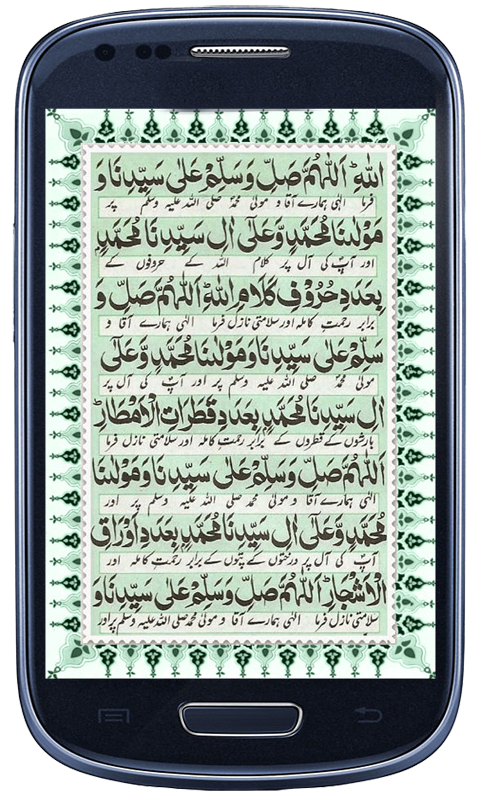 اللّٰهِ ؕ اَللّٰهُمَّ صَلِّ وَسَلِّمْ عَلٰى سَيِّدِنَا وَ
فرما الٰہی ہمارے آقا و مولیٰ محمد صلی اللہ علیہ وسلم پر
مَوْلٰنَا مُحَمَّدٍ وَّعَلٰٓى اٰلِ سَيِّدِنَا مُحَمَّدٍ
اور آپؐ کی آل پر کلام اللہ کے حروفوں کے
بِعَدَدِ حُرُوْفِ كَلَامِ اللّٰهِ اَللّٰهُمَّ صَلِّ وَ
برابر رحمتِ کاملہ اور سلامتی نازل فرما الٰہی ہمارے آقا و
سَلِّمْ عَلٰى سَيِّدِنَا وَمَوْلٰنَا مُحَمَّدٍ وَّعَلٰٓى
مولیٰ محمدؐ صلی اللہ علیہ وسلم پر اور آپؐ کی آل پر
اٰلِ سَيِّدِنَا مُحَمَّدٍ بِعَدَدِ قَطَرَاتِ الْاَمْطَارِ ؕ
بارشوں کے قطروں کے برابر رحمتِ کاملہ اور سلامتی نازل فرما
اَللّٰهُمَّ صَلِّ وَسَلِّمْ عَلٰى سَيِّدِنَا وَمَوْلٰنَا
الٰہی ہمارے آقا و مولیٰ محمد صلی اللہ علیہ وسلم پر اور
مُحَمَّدٍ وَّعَلٰٓى اٰلِ سَيِّدِنَا مُحَمَّدٍ بِعَدَدِ اَوْرَاقِ
آپؐ کی آل پر درختوں کے پتوں کے برابر رحمتِ کاملہ اور
الْاَشْجَارِ ؕ اَللّٰهُمَّ صَلِّ وَسَلِّمْ عَلٰى سَيِّدِنَا وَ
سلامتی نازل فرما الٰہی ہمارے آقا و مولیٰ محمد صلی اللہ علیہ وسلم پر اور